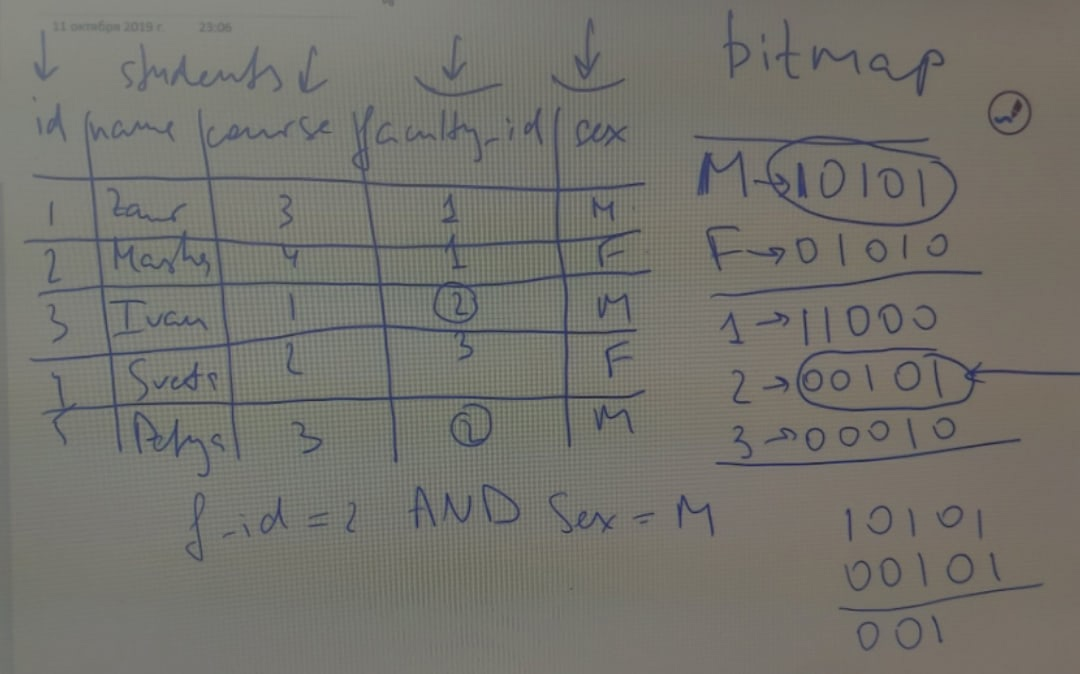 11 октября 2019 г. 23:06
students
id name course faculty_id sex
1 Zaur 3 1 M
2 Masha 4 1 F
3 Ivan 1 2 M
Sveta 2 3 F
5 Petya 3 2 M
f_id = 2 AND Sex = M
bitmap
M → 10101
F → 01010
1 → 11000
2 → 00101
3 → 00010
10101
00101
001